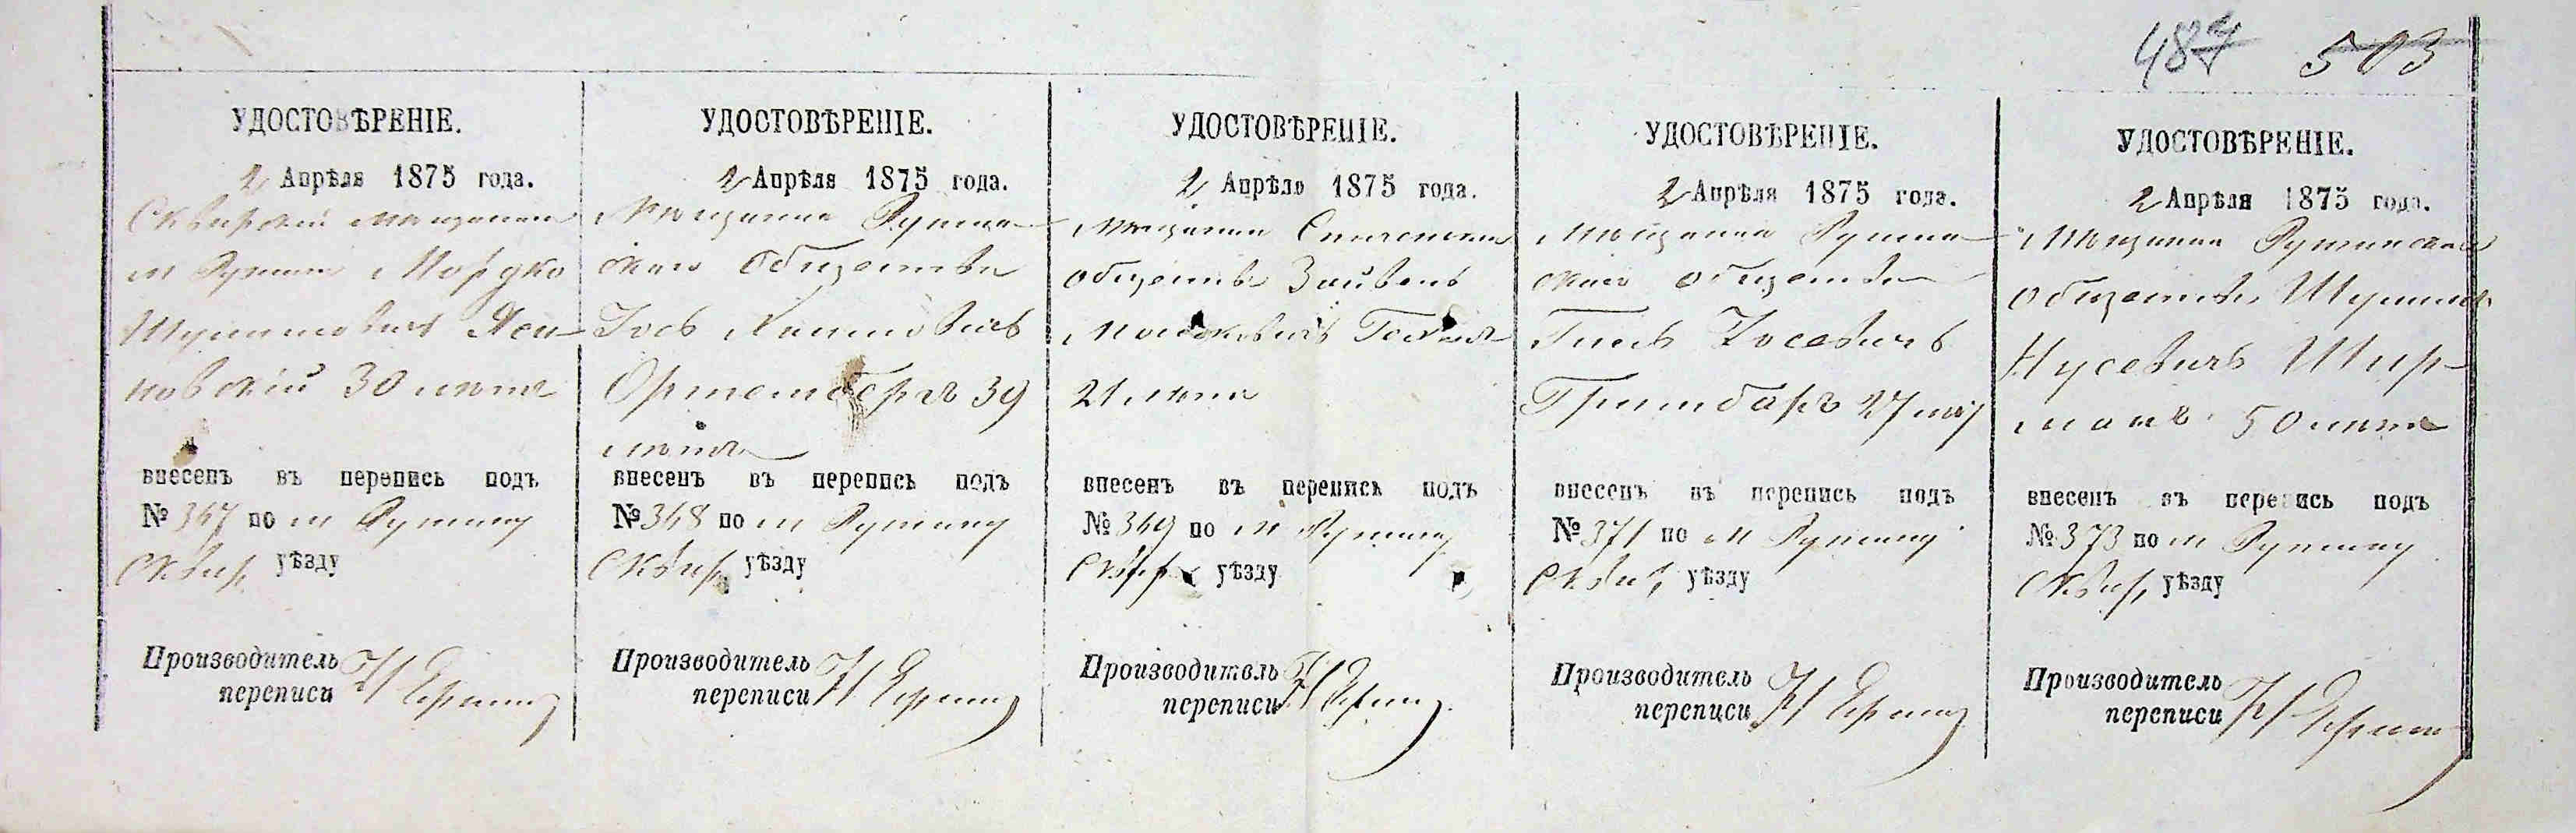 487 503
УДОСТОВѢРЕНІЕ.
2 Апрѣля 1875 года.
Сквирскій мещанин
м Ружин Мордко
Шулимовичъ
новскій 30 летъ
внесенъ въ перепись подъ
№ 367 по м Ружину
Сквир, уѣзду
Производитель
переписи
УДОСТОВѢРЕНІЕ.
2 Апрѣля 1875 года.
Мещанин Ружин
скаго общества
Іось Хаимовичъ
39
летъ
внесенъ въ перепись подъ
№ 368 по м Ружину
Сквир, уѣзду
Производитель
переписи
УДОСТОВѢРЕНІЕ.
2 Апрѣля 1875 года.
Мещанин
общества Зейвель
21 летъ
внесенъ въ перепись подъ
№ 369 по м Ружину
Сквир уѣзду
Производитель
переписи
УДОСТОВѢРЕНІЕ.
2 Апрѣля 1875 года.
Мещанин Ружин
скаго общества
Іосевичъ
27 лет
внесенъ въ перепись подъ
№ 371 по м Ружину
Сквир, уѣзду
Производитель
переписи
УДОСТОВѢРЕНІЕ.
2 Апрѣля 1875 года.
Мещанин Ружинскаго
общества Шулим
Нусевичъ Шир
манъ 50 летъ
внесенъ въ перепись подъ
№ 373 по м Ружину
Сквир, уѣзду
Производитель
переписи